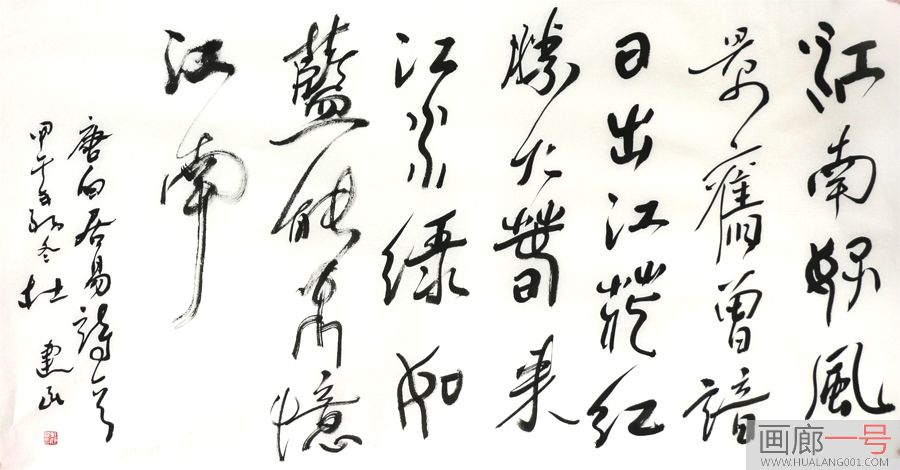 江南好風
景舊曾諳
日出江花紅
勝火春來
江水綠如
藍能不憶
江南
唐白居易詩一首
甲午年初冬杜建
画廊一号
WWW.HUALANG001.COM